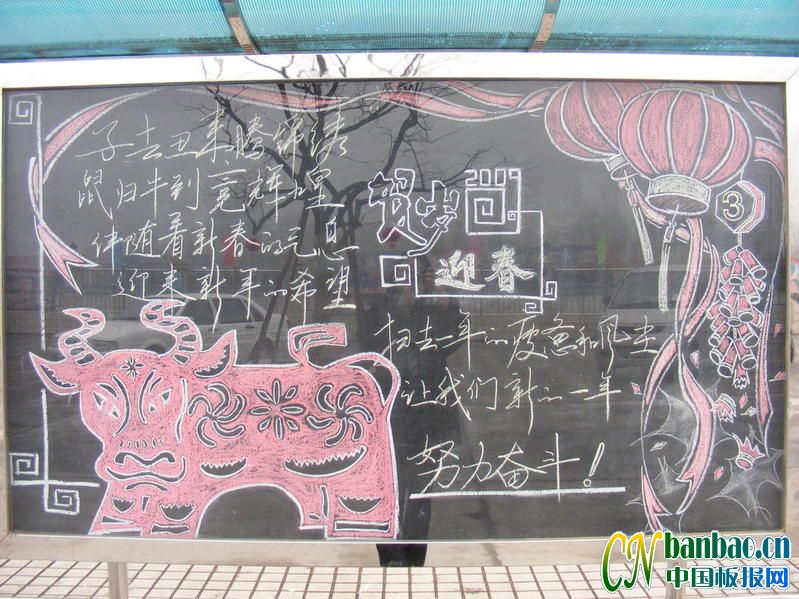 子去丑来腾锦绣
鼠归牛到竞辉煌
伴随着新春的气息
迎来新年的希望
贺岁
迎春
扫去一年的疲惫和风尘
让我们新的一年
努力奋斗!
3
CN banbao.cn
中国板报网